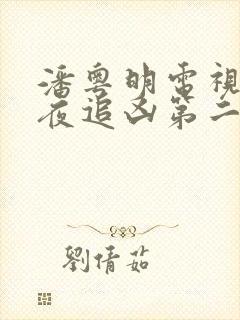 潘粵明電視
夜追凶第二
劉倩茹